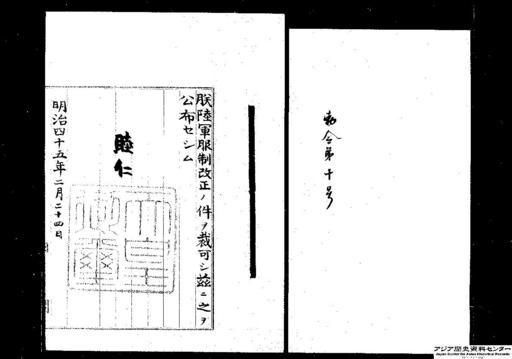 勅令第十号
朕陸軍服制改正ノ件ヲ裁可シ茲ニ之ヲ
公布セシム
睦仁
天皇
御璽
明治四十五年二月二十四日
アジア歴史資料センター
Japan Center for Asian Historical Records